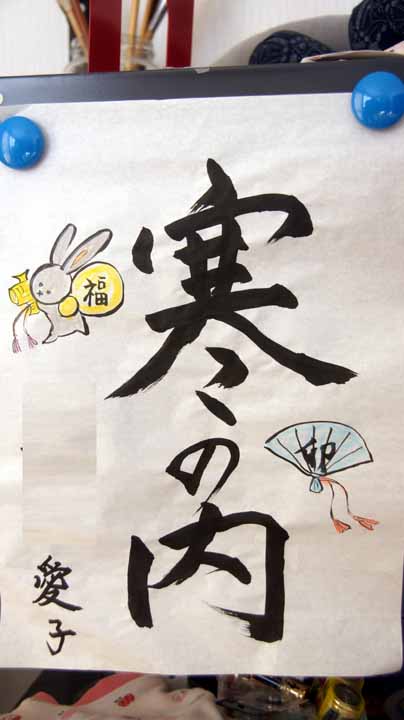 寒の内
愛子
福
卯